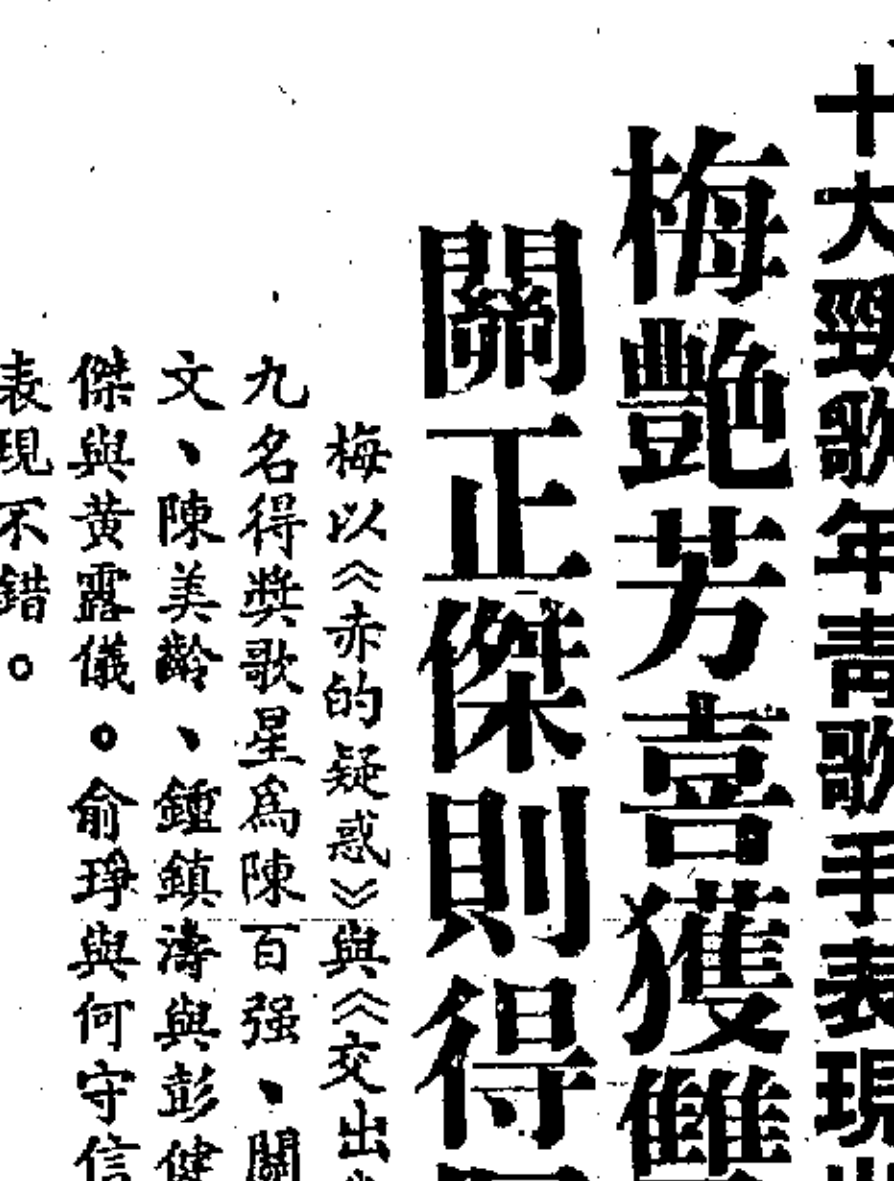 十大勁歌年靑歌手表現
梅艷芳喜獲雙
關正傑則得
梅以《赤的疑惑》與《交出
九名得獎歌星爲陳百强、關
文、陳美齡、鍾鎮濤與彭健
傑與黃露儀。俞琤與何守信
表現不錯。